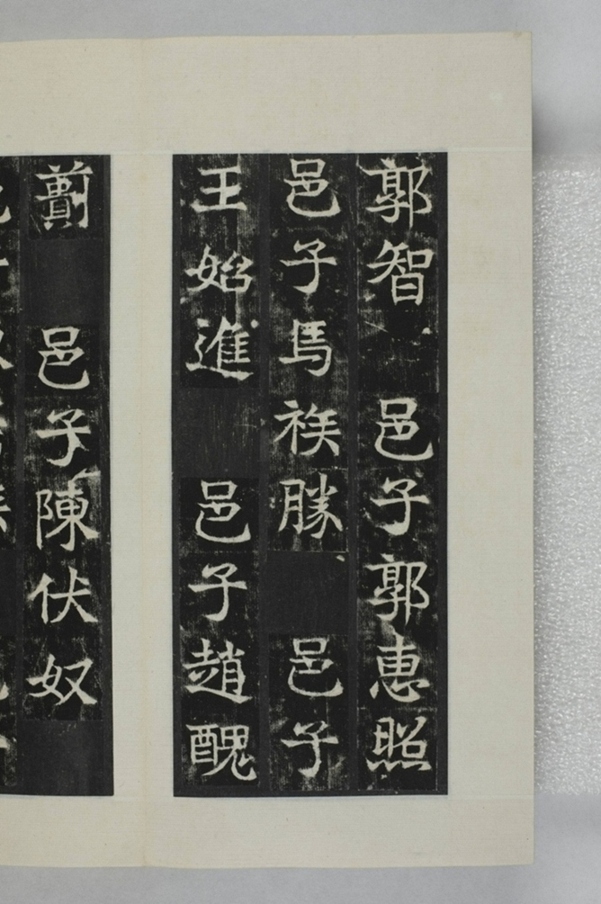 郭智 邑子郭惠照
邑子馬祑勝 邑子
王始進 邑子趙醜
邑子陳伏奴